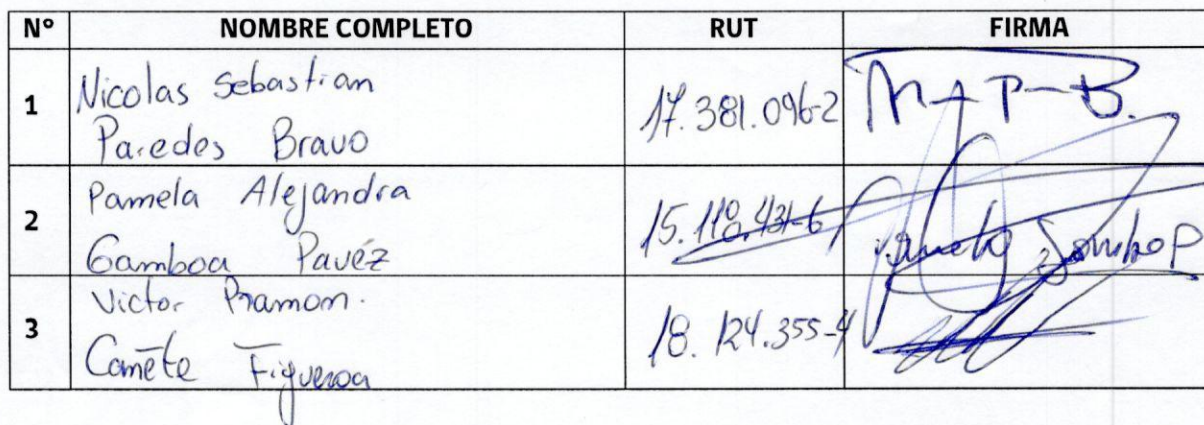 N° NOMBRE COMPLETO RUT FIRMA
1 Nicolas Sebastian
Paredes Bravo
17.381.096-2
N-A P-B.
2 Pamela Alejandra
Gamboa Pavéz
15.118.431-6
3 Victor Ramon.
Cañete Figueroa
18.124.355-4